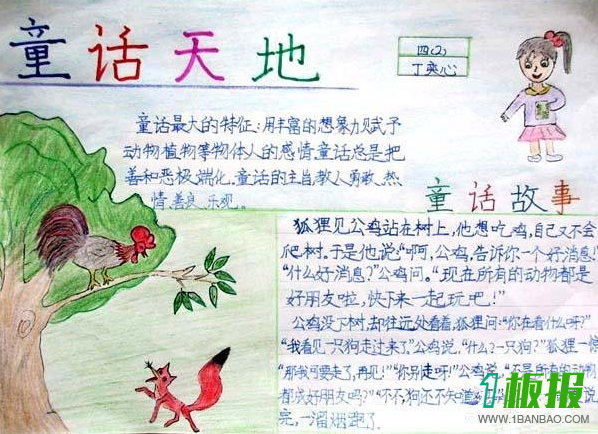 童话天地
四(2)
丁奕心
童话最大的特征:用丰富的想象力赋予
动物植物等物体人的感情,童话总是把
善和恶极端化,童话的主旨教人勇敢,热
情,善良,乐观。
童话故事
狐狸见公鸡站在树上,他想吃鸡,自己又不会
爬树。于是他说:“啊,公鸡,告诉你一个好消息!”
“什么好消息?”公鸡问。“现在所有的动物都是
好朋友啦,快下来一起玩吧!”
公鸡没下树,却往远处看着,狐狸问:“你在看什么呀?”
“我看见一只狗走过来了”公鸡说,“什么?一只狗?”狐狸一惊
“那我可要走了,再见!”“你别走呀!”公鸡说,“不是所有的动物
都成好朋友吗?”“不,不,狗还不知道 说
完,一溜烟跑了.
1板报
WWW.1BANBAO.COM